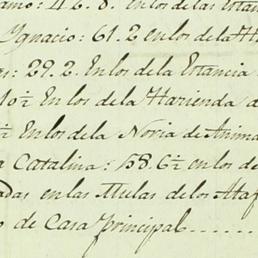 amo: 4.6.8. En los de las Estan
Ygnacio: 61.2 en los de la H
as: 29.2. En los de la Estancia
10½ En los de la Hazienda d
½ En los de la Noria de Anima
a Catalina: 158.6½ en los de
adas en las Mulas de los Ataj
o de Casa principal